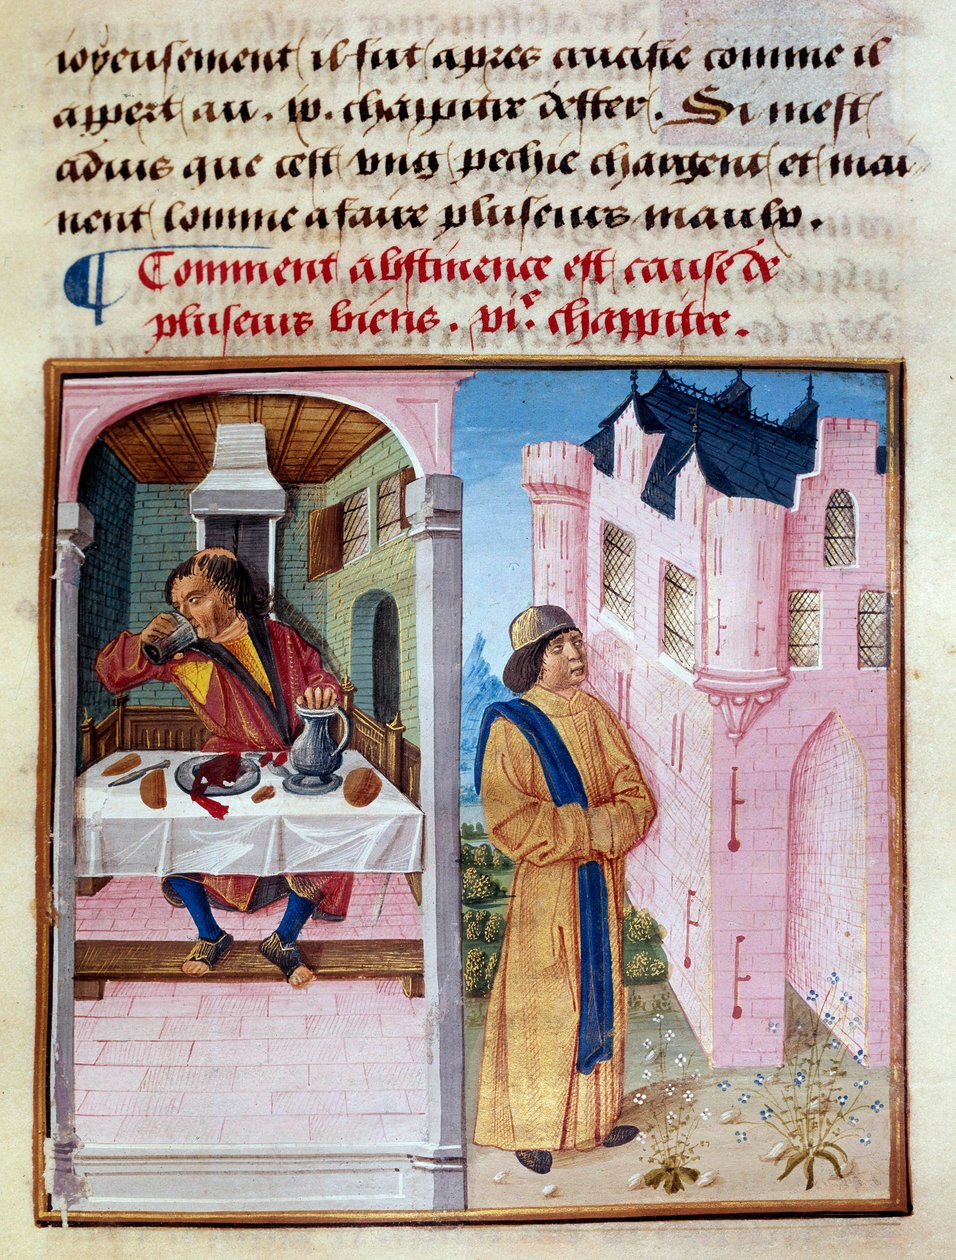 ioyeusement il fut apres crucifie comme il
appert au .iv. chappitre dester. Si mest
aduis que cest vng pechie changent et mai
nent lomme a faire plusieurs maulx.
Comment abstinence est cause de
plusieurs biens. vie. chappitre.